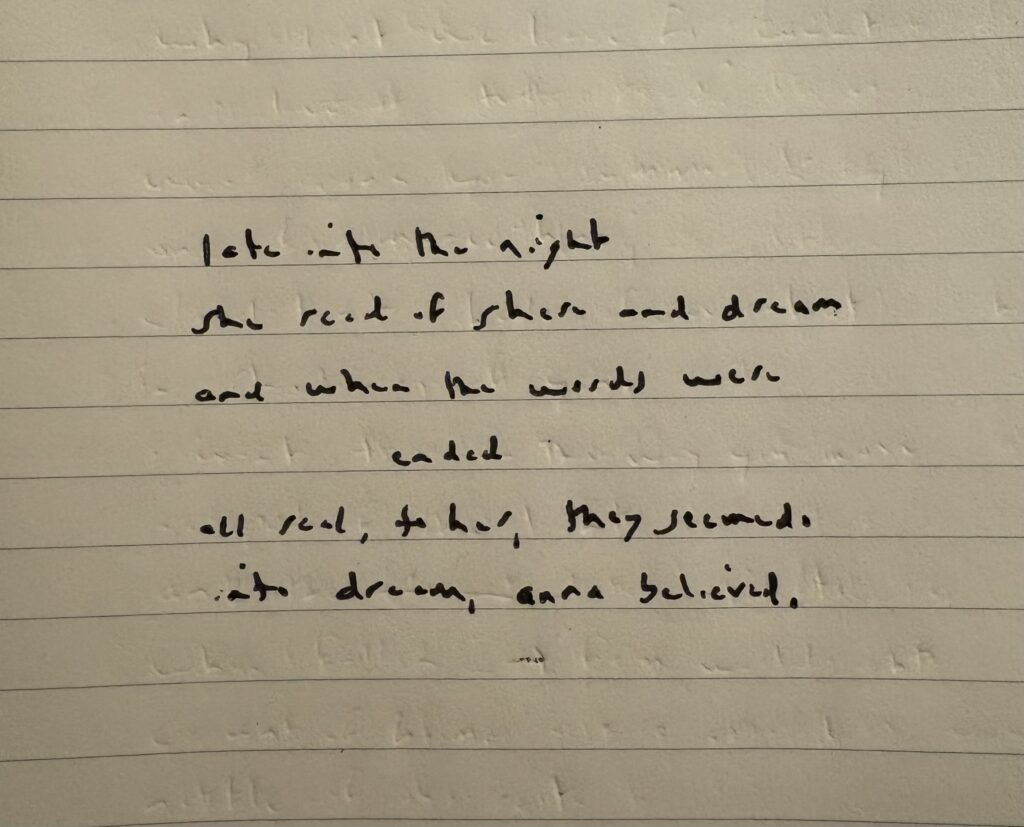 late into the night
she read of and dream
and when the words were
ended
all real, to her, they seemed.
into dream, anna believed.